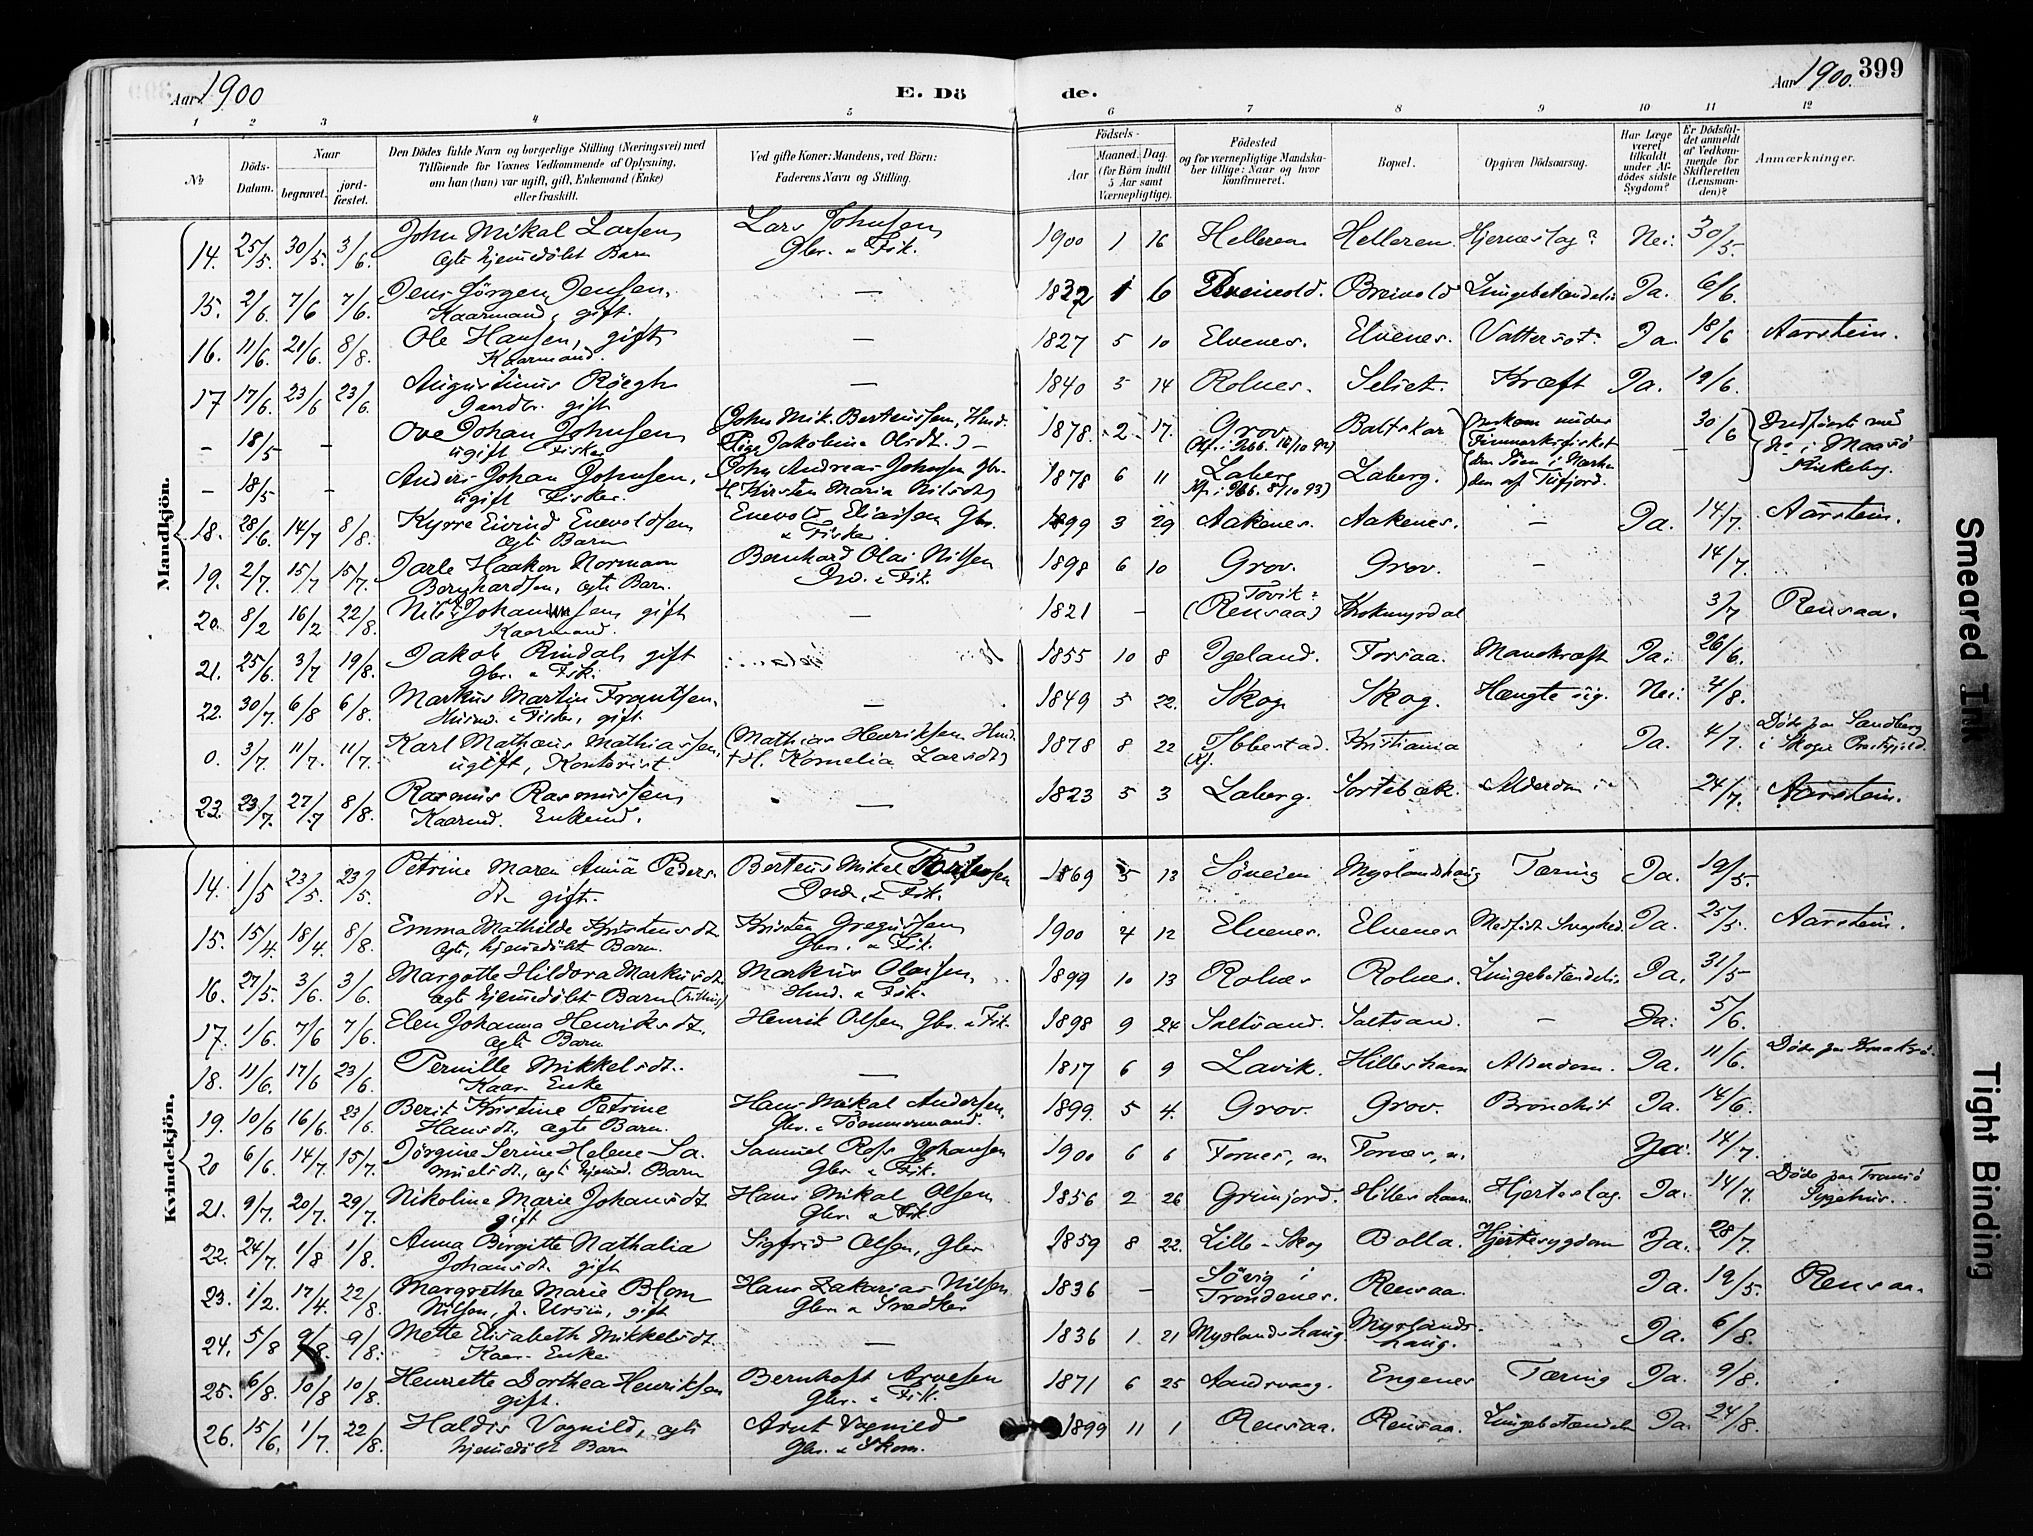 Aar 1900
E. Dö
de.
Aar 1900. 399
1 2 3 4 5 6 7 8 9 10 11 12
№
Döds-Datum.
Naar
begravet.
jord-fæstet.
Den Dödes fulde Navn og borgerlige Stilling (Næringsvei) med
Tilföiende for Voxnes Vedkommende af Oplysning,
om han (hun) var ugift, gift, Enkemand (Enke)
eller fraskilt.
Ved gifte Koner: Mandens, ved Börn:
Faderens Navn og Stilling.
Födsels-
Aar
Maaned. Dag.
(for Börn indtil
5 Aar samt
Værnepligtige).
Födested
og for værnepligtige Mandska-
ber tillige: Naar og hvor
konfirmeret.
Bopæl.
Opgiven Dödsaarsag.
Har Læge
været
tilkaldt
under Af-
dödes sidste
Sygdom?
Er Dödsfal-
det anmeldt
af Vedkom-
mende for
Skifteretten
(Lensman-
den)?
Anmærkninger.
Mandkjön.
14. 25/5. 30/5. 3/6. John Mikal Larsen, Lars Johnsen, 1900 1 16 Helleren Helleren. Hjerneslag? Nei. 30/5.
ægte hjemmedøbt Barn Gbr. & Fisk.
15. 2/6. 7/6 7/6. Jens Jörgen Jensen, — 1832 1 6 Breivold. Breivold Lungebetændelse Ja. 6/6.
Kaarmand, gift.
16. 11/6. 21/6. 8/8. Ole Hansen, gift — 1827 5 10 Elvenes. Elvenes. Vattersot. Ja. 18/6 Aarstein.
Kaarmand.
17 17/6. 23/6 23/6. Augustinus Röegh — 1840 5 14 Rolnes. Selset. Kræft Ja. 19/6.
Gaardbr. gift
– 18/5 – Ove Johan Johnsen (John Mik. Berteussen, Hmd. 1878. 2. 17. Grov Baltskar Omkom under 30/6
ugift Fisker Pige Jakobina Olsdt.) – Finmarksfisket
– 18/5 – Anders Johan Johnsen, John Andreas Johnsen Gbr. 1878 6 11 Laberg Laberg. i Maasö
ugift Fisker. H. Kirsten Maria Nilsdt) den af Tufjord. Kirkebog.
18. 28/6. 14/7 8/8. Kyrre Eivind Enevoldsen Enevold Eliassen Gbr. 1899 3 29 Aakenes. Aakenes. – Ja. 14/7. Aarstein.
ægte Barn & Fisker
19. 2/7. 15/7 15/7. Jarle Haakon Normann Bernhard Olai Nilsen 1898 6 10 Grov. Grov. – 14/7.
Bernhardsen, ægte Barn. & Fisk.
20. 8/2 16/2 22/8. Nils Johansen gift — 1821 – Tovik? (Rensaa) Krokmyrdal 3/7 Rensaa.
Kaarmand.
21. 25/6. 3/7 19/8. Jakob Rindal, gift 1855 10 8 Igeland. Forsaa. Mavekræft Ja. 26/6.
Gbr. & Fisk.
22. 30/7. 6/8 6/8. Markus Martin Frantsen, — 1849 5 22. Skog Skog. Hængte sig. Nei. 4/8.
Husmd. & Fisker, gift.
0. 3/7. 11/7. 11/7. Karl Mathæus Mathiassen, (Mathias Henriksen Hmd. 1878 8 22 Ibbestad. Kristiania Ja. 4/7. Døde paa Sandberg
ugift, Kontorist. + H. Kornelia Larsdt)
23. 23/7. 27/7 8/8. Rasmus Rasmussen — 1823 5 3 Laberg. Sortebæk. Alderdom 24/7. Aarstein.
Kaarmd. Enkemd.
Kvindekjön.
14. 1/5 23/5. 23/5. Petrine Maren Anna Peders- Berteus Mikal 1869 5 13 Söveien Myrlandshaug Tæring Ja. 19/5.
dtr. gift. & Fisk.
15. 15/4. 18/4 8/8. Emma Mathilde Kristensdt. Kristen Gregussen 1900 4 12 Elvenes. Elvenes Medfödt Svaghed. Ja. 25/5. Aarstein.
ægte, hjemmedöbt Barn. Gbr. & Fisk.
16. 27/5. 3/6. 3/6. Margothe Hildora Markusdt. Markus Olausen 1899 10 13 Rolnes Rolnes. Lungebetændelse Ja. 31/5
ægte hjemmedöbt Barn (Tvilling) Hmd. & Fisk.
17. 1/6. 7/6 7/6. Elen Johanna Henriksdt. Henrik Olsen Gbr. & Fisk. 1898 9 24 Saltvand. Saltvand. – Ja. 5/6.
ægte Barn
18. 11/6. 17/6 23/6. Pernille Mikkelsdt. — 1817 6 9 Lavik. Hilleshamn Alderdom. Ja. 11/6. Döde paa
Kaar- Enke
19. 10/6 16/6. 23/6. Berit Kristine Petrine Hans Mikal Andersen, 1899. 5 4. Grov. Grov. Bronchit Ja. 14/6.
Hansdt, ægte Barn. Gbr. & Tömmermand.
20 6/6. 14/7. 15/7. Jörgine Serine Helene Sa- Samuel Rofs Johansen 1900 6 6 Fornes, Fornes, Ja. 14/7.
muelsdt, ægte hjemmed. Barn Gbr. & Fisk.
21. 9/7. 20/7. 29/7. Nikoline Marie Johansdt. Hans Mikal Olsen 1856 2 26 Grunfjord. Hilleshamn Hjerteslag. Ja. 14/7. Döde paa Tromsö
gift Gbr. & Fisk. Sygehus.
22. 24/7. 1/8 1/8. Anna Birgitte Nathalia Sigfrid Olsen, Gbr 1859 8 22. Lille-Skog Bolla. Hjertesygdom Ja. 28/7.
Johansdt. gift
23. 1/2. 17/4. 22/8. Margrethe Marie Blom Hans Zakarias Nilsen 1836 – Sövig i Trondenes. Rensaa. Ja. 19/5. Rensaa.
Nilsen, f. Ursin, gift Gbr. & Snedker
24. 5/8 9/8. 9/8. Mette Elisabeth Mikkelsdt. — 1836 1. 21 Myrlandshaug Myrlands-haug. Ja. 6/8.
Kaar- Enke
25. 6/8. 10/8 10/8. Henrette Dorthea Henriksen Bernhoft Arvesen 1871 6 25 Sandvaag. Engenes Tæring Ja. 9/8.
gift. Gbr. & Fisk.
26. 15/6. 1/7. 22/8. Haldis Vognild, ægte Arnt Vognild 1899 11 1 Rensaa. Rensaa. Lungebetændelse Ja. 24/8.
hjemmedöbt Barn Gbr. & Skom.
Smeared Ink
Tight Binding